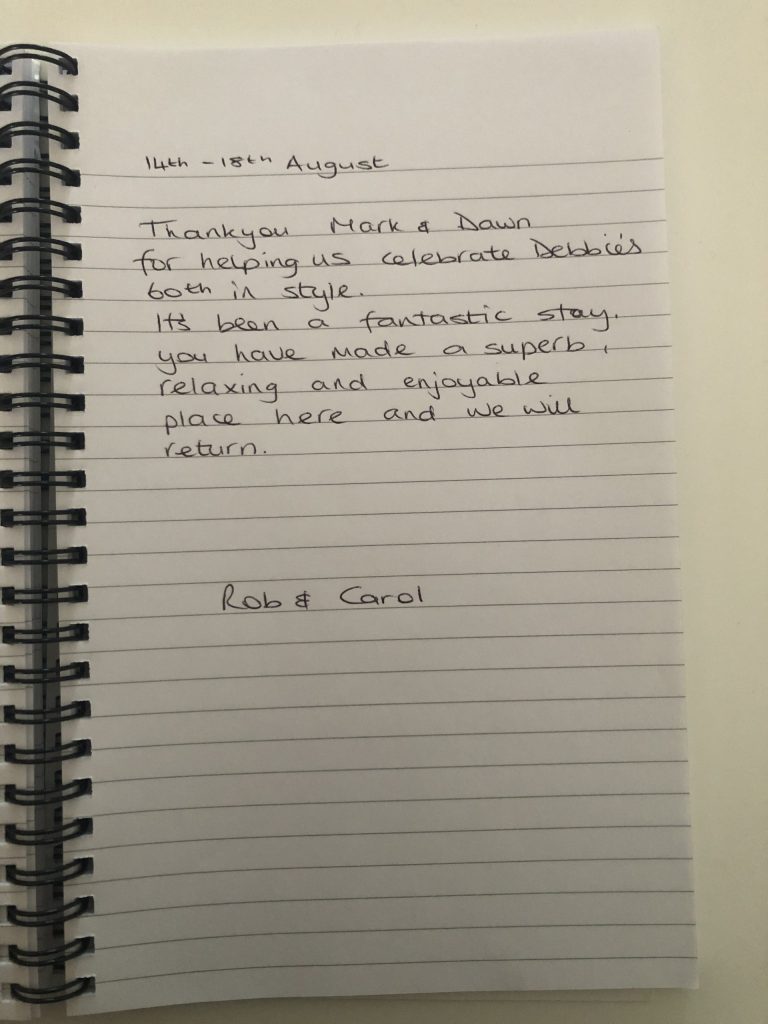 14th - 18th August
Thankyou Mark & Dawn
for helping us celebrate Debbie's
60th in style.
It's been a fantastic stay.
you have made a superb,
relaxing and enjoyable
place here and we will
return.
Rob & Carol